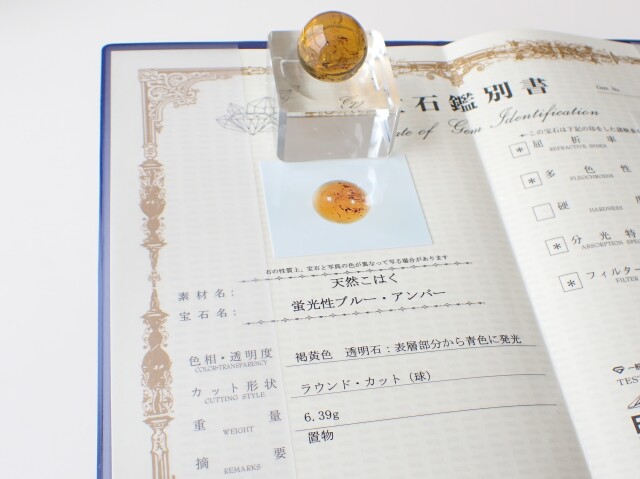 石鑑別書
ate of Gem Identification
石の性質上、宝石と写真の色が異なって写る場合があります
素材名： 天然こはく
宝石名： 蛍光性ブルー・アンバー
色相・透明度 褐黄色 透明石：表層部分から青色に発光
COLOR・TRANSPARENCY
カット形状 ラウンド・カット（球）
CUTTING STYLE
重量 6.39g
WEIGHT
摘要 置物
REMARKS
←この宝石は下記の印をした諸検査
* 屈折率
REFRACTIVE INDEX
* 多色性
PLEOCHROISM
硬
HARDNESS
* 分光特
ABSORPTION SPE
* フィルター
FILTER
TEST